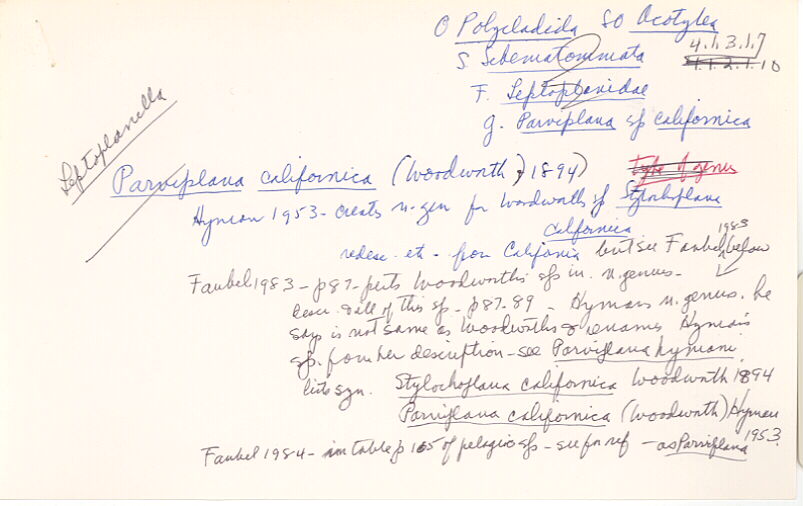 O Polycladida SO Acotylea
S Schematommata 4.1.3.1.7
1.1.2.1.10
F. Leptoplanidae
g. Parviplana sp californica
Leptoplanella
Parviplana californica (Woodworth, 1894) type of genus
Hyman 1953 - creates n. gen for Woodworth's sp Stylochoplana
californica
redesc. etc - from California but see Faubel 1983 below
Faubel 1983 - p87 - puts Woodworth's sp in n. genus -
descr. & all of this sp - p87-89 - Hyman's n. genus. he
says is not same as Woodworth's & renames Hyman's
sp. from her description - see Parviplana hymani
lists syn. Stylochoplana californica Woodworth 1894
Parviplana californica (Woodworth) Hyman
1953.
Faubel 1984 - in table p 165 of pelagic sp - see for ref - as Parviplana